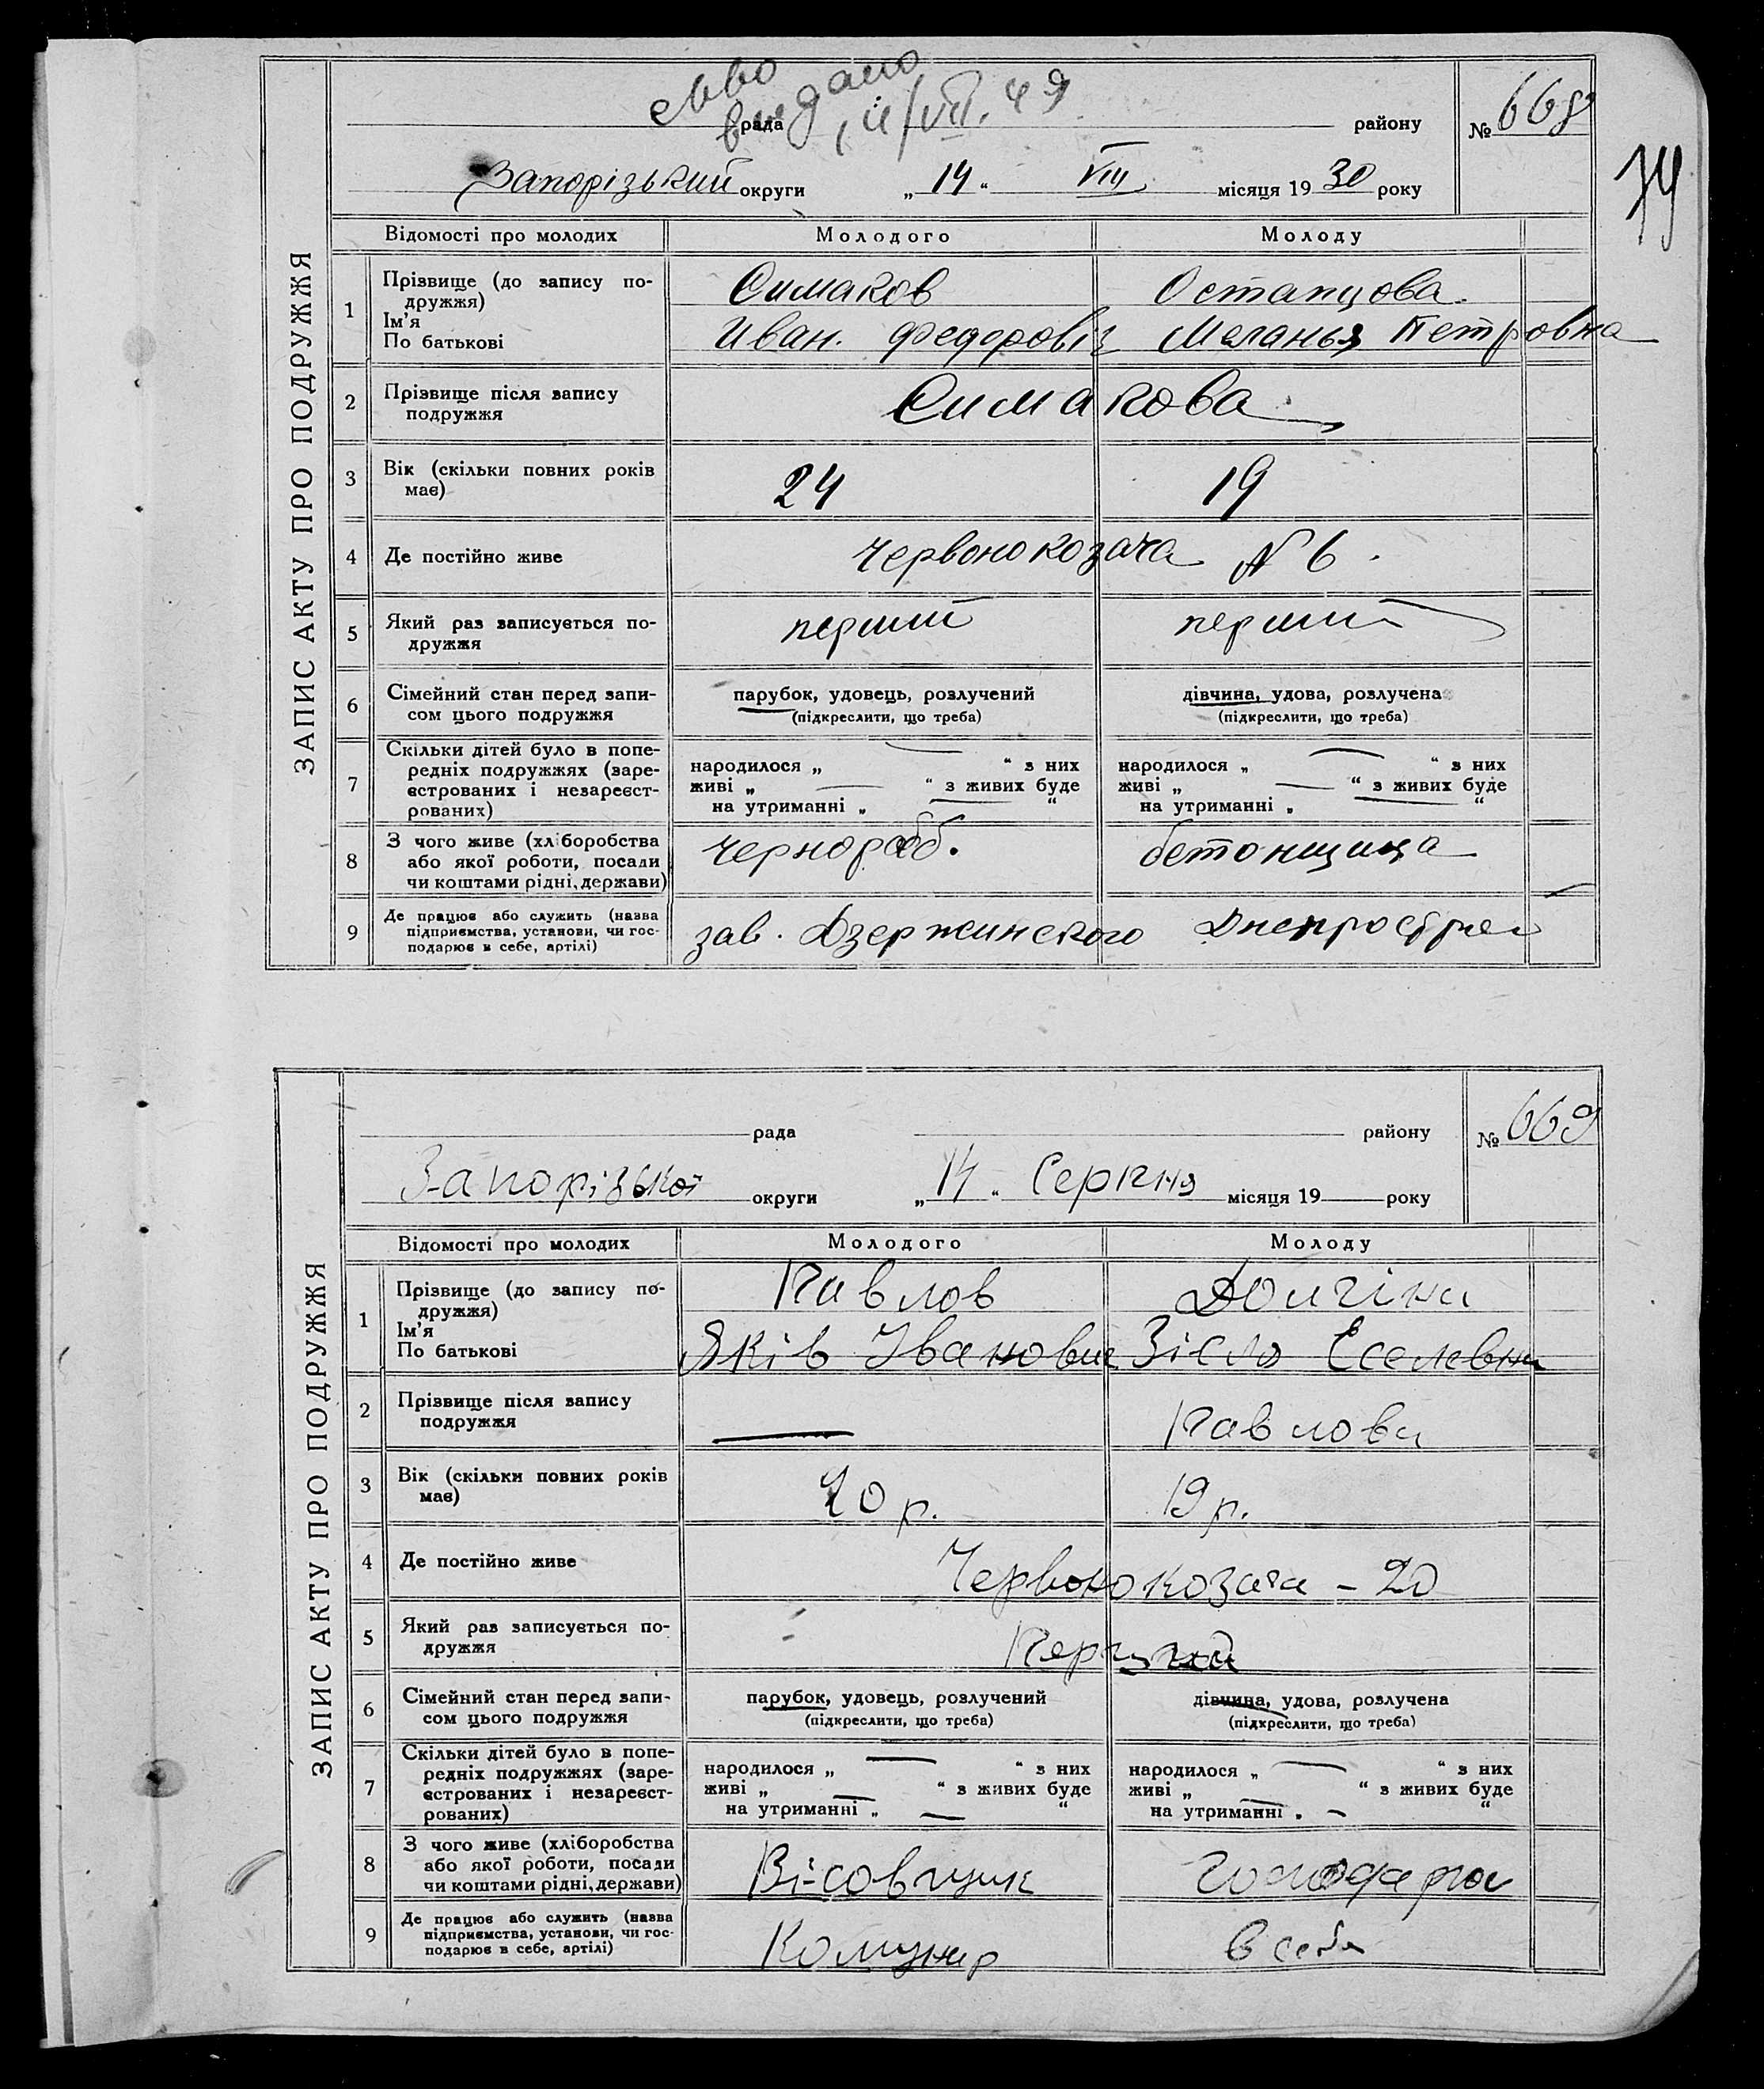 св-во
видано
рада
11/VII. 49
району
№ 668
74
Запорізький округи „14“ VIII місяця 1930 року
ЗАПИС АКТУ ПРО ПОДРУЖЖЯ
Відомості про молодих
Молодого
Молоду
1
Прізвище (до запису по-
дружжя)
Ім'я
По батькові
Симаков
Иван. Федоровіч
Остапцова.
Меланья Петровна
2
Прізвище після запису
подружжя
Симакова
3
Вік (скільки повних років
має)
24
19
4
Де постійно живе
Червонокозача № 6.
5
Який раз записується по-
дружжя
перший
перший
6
Сімейний стан перед запи-
сом цього подружжя
парубок, удовець, розлучений
(підкреслити, що треба)
дівчина, удова, розлучена
(підкреслити, що треба)
7
Скільки дітей було в попе-
редніх подружжях (заре-
єстрованих і незареєст-
рованих)
народилося „ — “ з них
живі „ — “ з живих буде
на утриманні „ — “
народилося „ — “ з них
живі „ — “ з живих буде
на утриманні „ — “
8
З чого живе (хліборобства
або якої роботи, посади
чи коштами рідні, держави)
чернораб.
бетонщица
9
Де працює або служить (назва
підприємства, установи, чи гос-
подарює в себе, артілі)
зав. Дзержинского
Днепрострой
рада
району
№ 669
Запорізької округи „14“ Серпня місяця 19 року
ЗАПИС АКТУ ПРО ПОДРУЖЖЯ
Відомості про молодих
Молодого
Молоду
1
Прізвище (до запису по-
дружжя)
Ім'я
По батькові
Павлов
Яків Іванович
Долгіна
Зісля
2
Прізвище після запису
подружжя
—
Павлова
3
Вік (скільки повних років
має)
20 р.
19 р.
4
Де постійно живе
Червонокозача – 20
5
Який раз записується по-
дружжя
Перший
6
Сімейний стан перед запи-
сом цього подружжя
парубок, удовець, розлучений
(підкреслити, що треба)
дівчина, удова, розлучена
(підкреслити, що треба)
7
Скільки дітей було в попе-
редніх подружжях (заре-
єстрованих і незареєст-
рованих)
народилося „ — “ з них
живі „ — “ з живих буде
на утриманні „ — “
народилося „ — “ з них
живі „ — “ з живих буде
на утриманні „ — “
8
З чого живе (хліборобства
або якої роботи, посади
чи коштами рідні, держави)
Вісовщик
Господарює
9
Де працює або служить (назва
підприємства, установи, чи гос-
подарює в себе, артілі)
Комунар
в себе